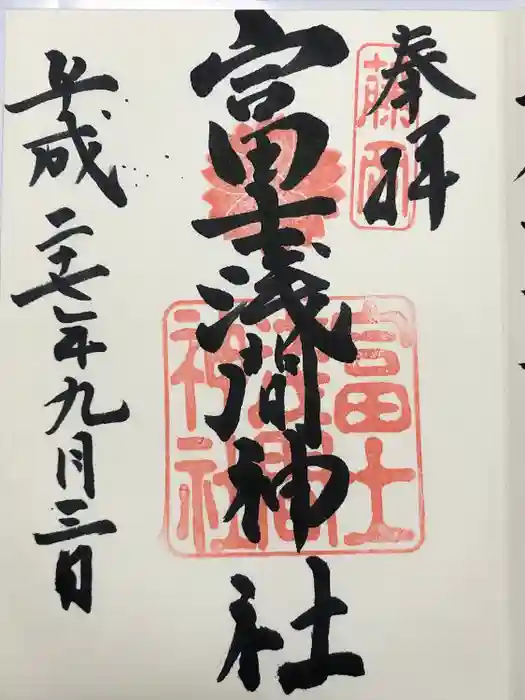 奉拝
藤岡
富士浅間神社
富士
浅間
神社
平成二十七年九月三日